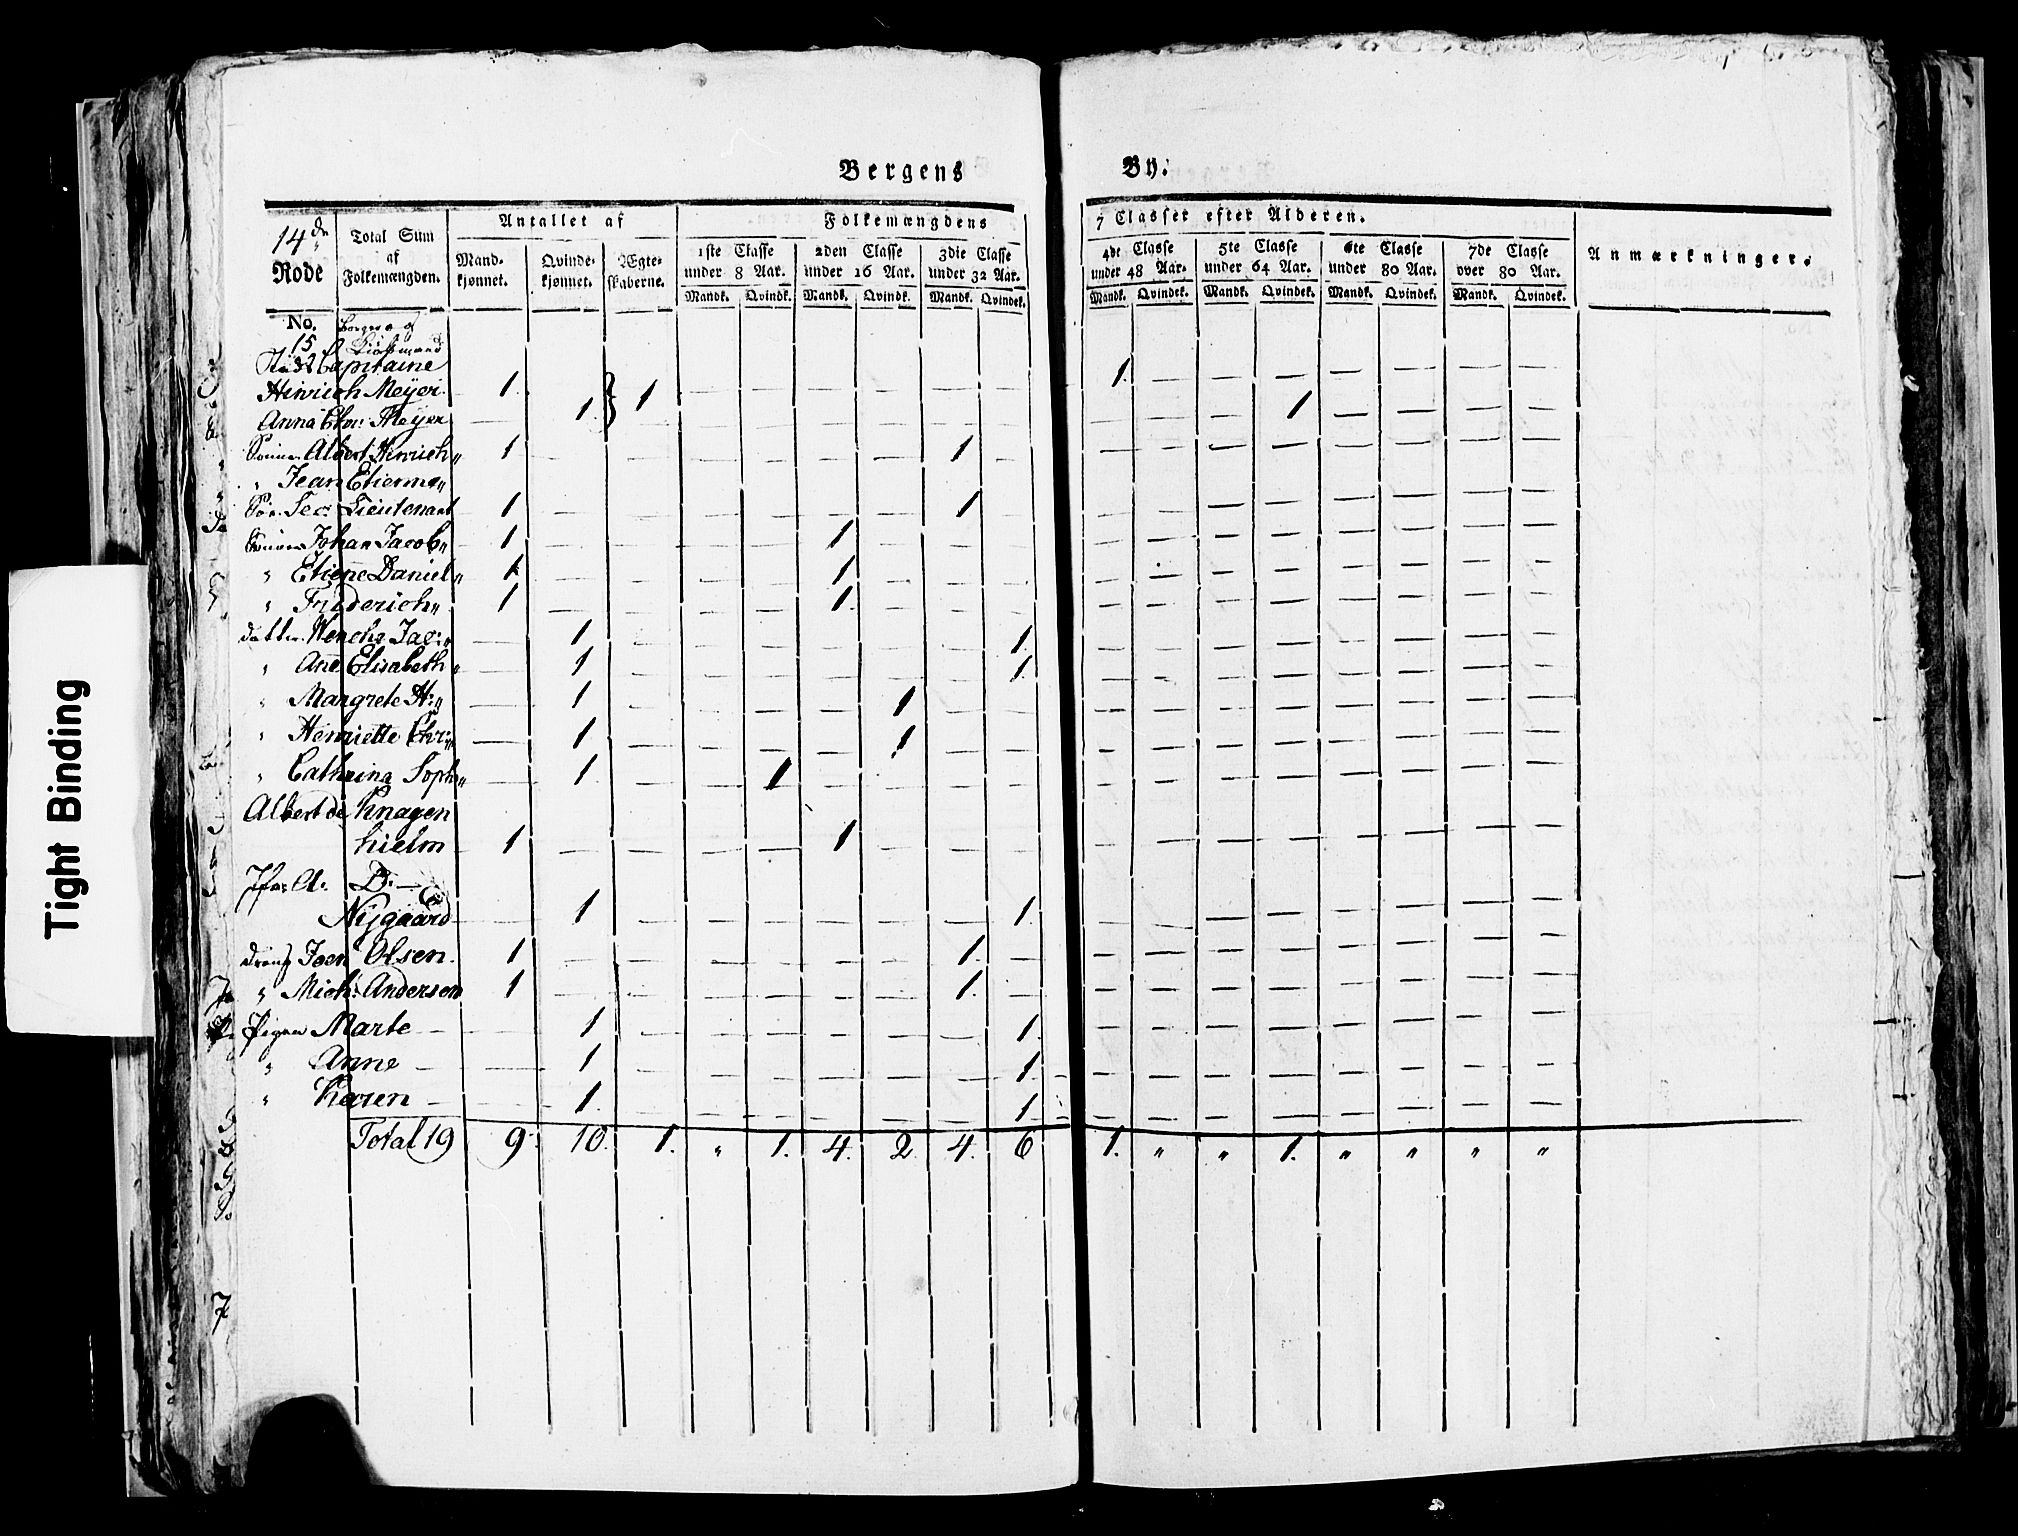 Bergens By:
14de Rode
Total Sum af Folkemængden.
Antallet af
Mandkjønnet.
Qvindekjønnet.
Ægteskaberne.
Folkemængdens 7 Classer efter Alderen.
1ste Classe under 8 Aar.
2den Classe under 16 Aar.
3die Classe under 32 Aar.
4de Classe under 48 Aar.
5te Classe under 64 Aar.
6te Classe under 80 Aar.
7de Classe over 80 Aar.
Anmærkninger.
Mandk. Qvindk. Mandk. Qvindk. Mandk. Qvindek. Mandk. Qvindek. Mandk. Qvindek. Mandk. Qvindek. Mandk. Qvindek.
No.
15
Capitaine
Hinrich Meyer 1. } 1 1.
Anna Chr: Meyer 1. 1
Sønner Albert Hinrich „ 1 1
„ Jean Etienne „
Sec: Lieutenant 1 1
Sønner Johan Jacob „ 1 1
„ Etiene Daniel „ 1 1
„ Friderich „ 1 1.
datter Wenche Jac: „ 1 1
„ Ane Elisabeth „ 1 1
„ Margrete H: „ 1 1
„ Henriette Chr: „ 1 1
„ Cathrina Soph „ 1 1
Albert de Knagen
hielm 1 1
Jfr: A: D:
Nygaard 1 1.
dreng Joen Olsen. 1 1.
„ Mich: Andersen 1 1.
Piger Marte 1 1
„ Anne 1 1
„ Karen 1. 1
Total 19 9. 10. 1. „ 1. 4. 2 4. 6 1. „ „ 1. „ „ „ „
Tight Binding